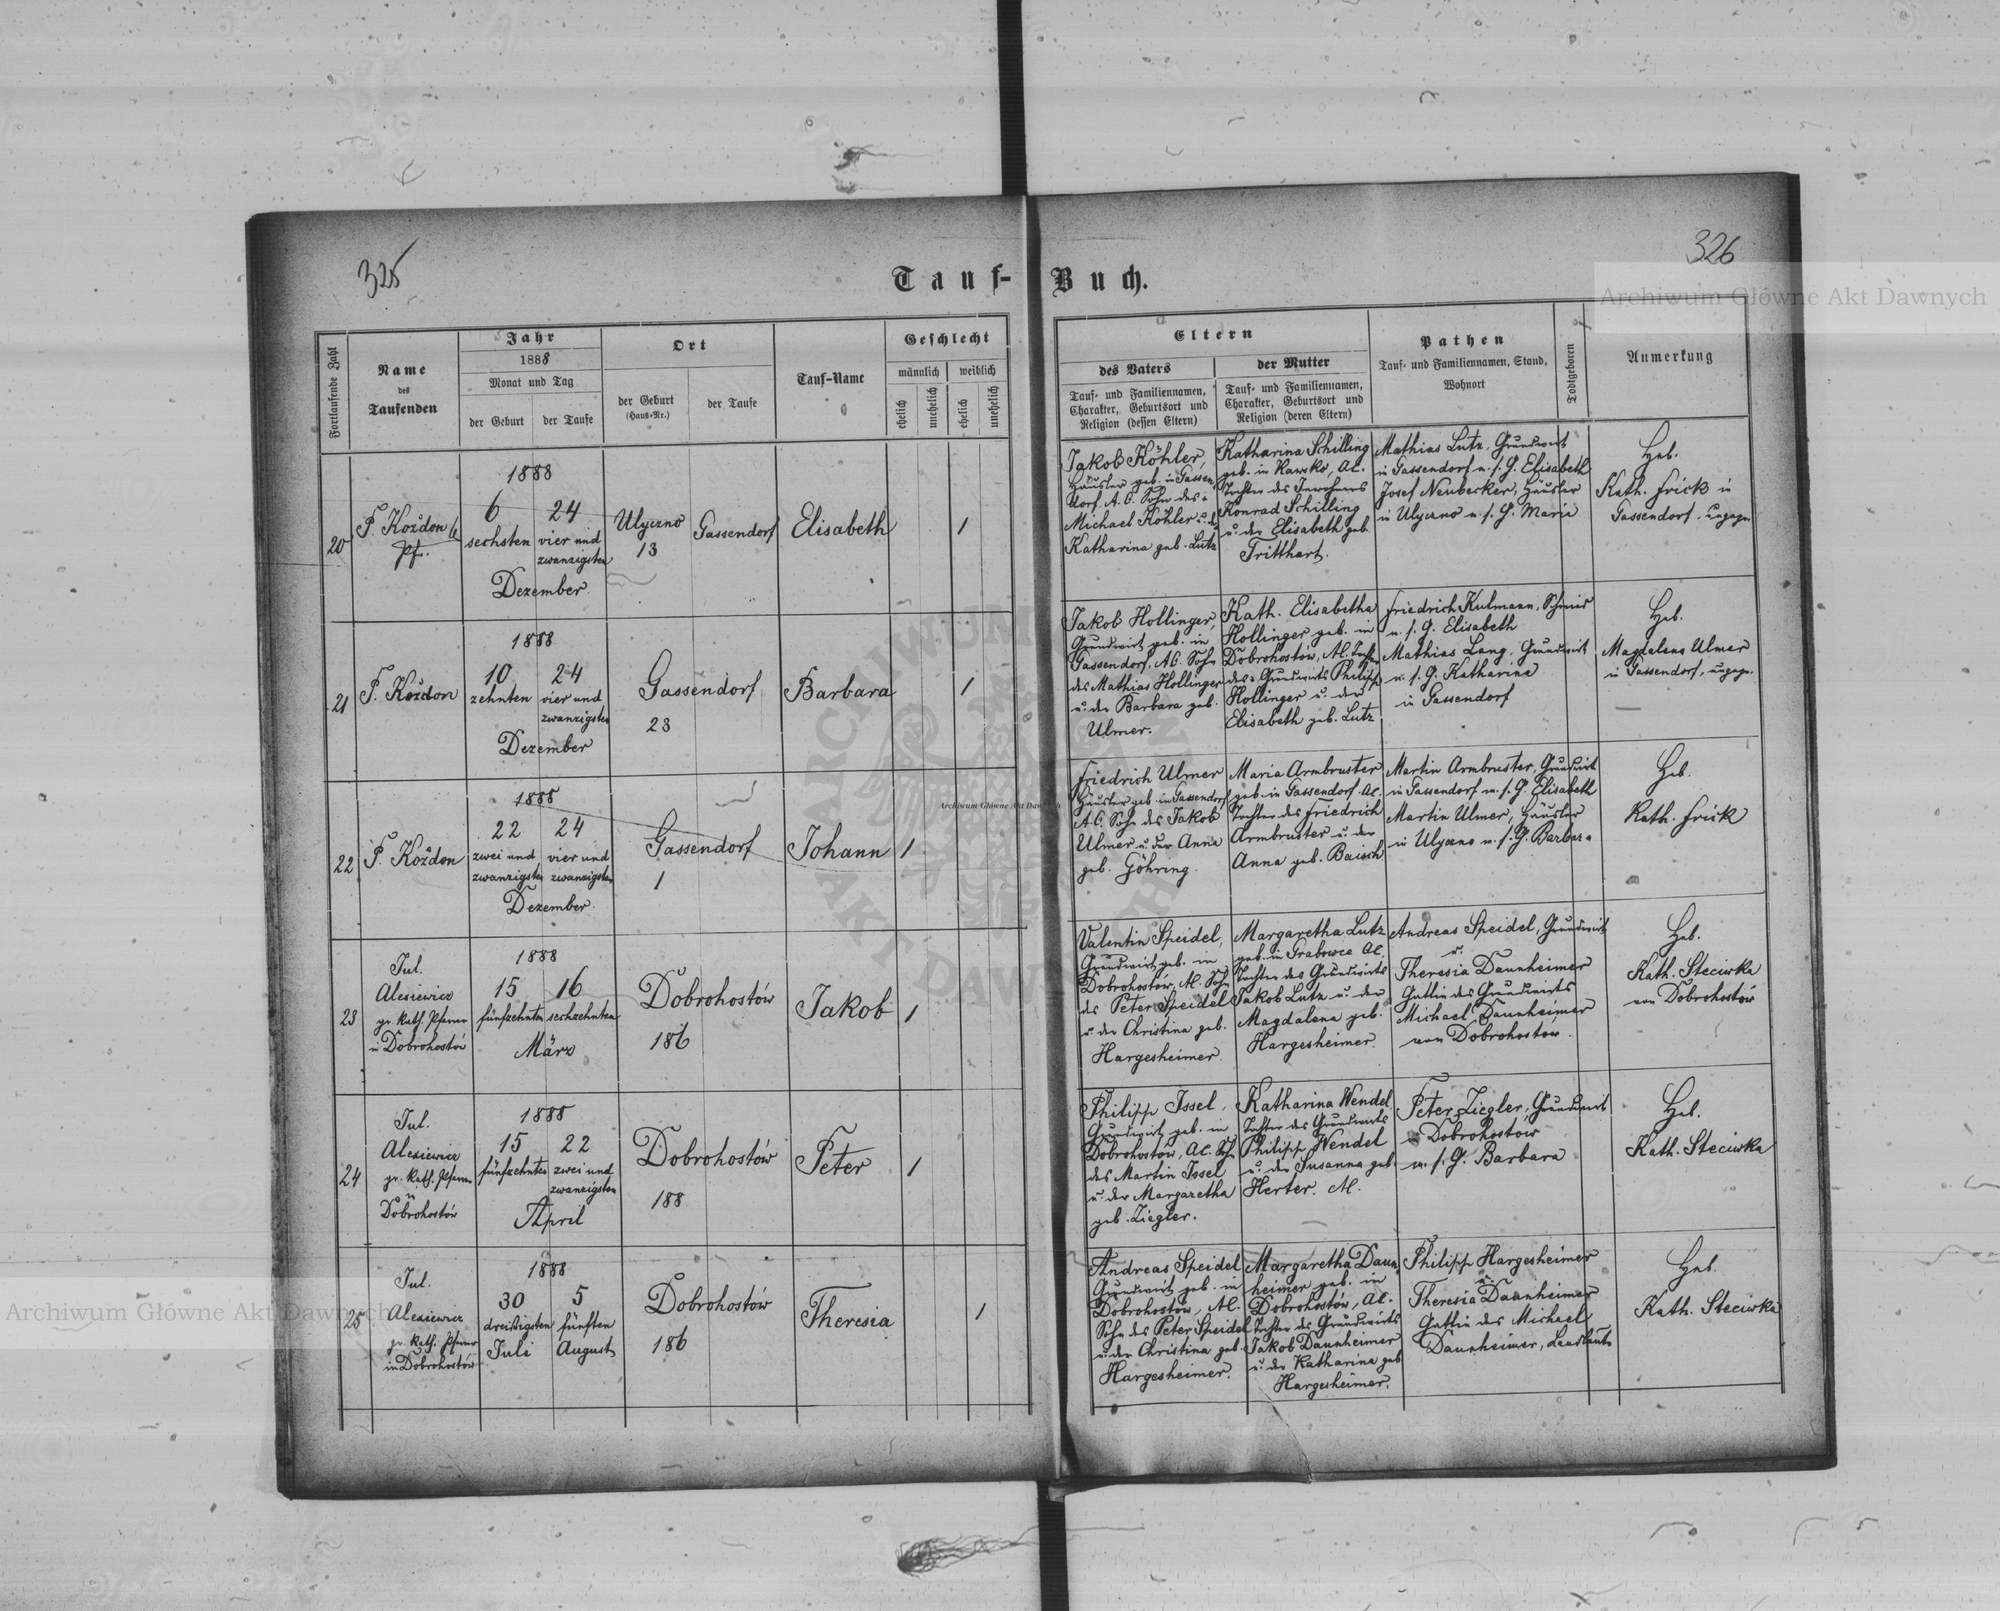 325
326
Tauf-
Buch.
Fortlaufende Zahl
Name
des
Taufenden
Jahr
1888
Monat und Tag
der Geburt
der Taufe
Ort
der Geburt
(Haus-Nr.)
der Taufe
Tauf-Name
Geschlecht
männlich
weiblich
ehelich
unehelich
ehelich
unehelich
Eltern
des Vaters
Tauf- und Familiennamen,
Charakter, Geburtsort und
Religion (dessen Eltern)
der Mutter
Tauf- und Familiennamen,
Charakter, Geburtsort und
Religion (deren Eltern)
Pathen
Tauf- und Familiennamen, Stand,
Wohnort
Todtgeboren
Anmerkung
20
F. Koždon
Pf.
1888
6
sechsten
24
vier und
zwanzigsten
Dezember
Ulyczno
13
Gassendorf
Elisabeth
1
Jakob Köhler,
Häusler geb. in Gassen
dorf, A.C. Sohn des
Michael Köhler u. d.
Katharina geb. Lutz
Katharina Schilling
geb. in Rawsko, AC.
Tochter des Inwohners
Konrad Schilling
u. der Elisabeth geb.
Tritthart.
Mathias Lutz, Grundwirt
in Gassendorf u. s. G. Elisabeth
Josef Neubecker, Häusler
in Ulyczno u. s. G. Maria
Heb.
Kath. Frick in
Gassendorf,
21
F. Koždon
1888
10
zehnten
24
vier und
zwanzigsten
Dezember
Gassendorf
23
Barbara
1
Jakob Hollinger,
Grundwirt geb. in
Gassendorf, AC. Sohn
des Mathias Hollinger
u. der Barbara geb.
Ulmer.
Kath. Elisabetha
Hollinger geb. in
Dobrohostow, AC. Tochter
des Grundwirts Philipp
Hollinger u. der
Elisabeth geb. Lutz
Friedrich Kulmann, Schmied
u. s. G. Elisabeth
Mathias Lang, Grundwirt
u. s. G. Katharina
in Gassendorf
Heb.
Magdalena Ulmer
in Gassendorf,
22
F. Koždon
1888
22
zwei und
zwanzigsten
24
vier und
zwanzigsten
Dezember
Gassendorf
1
Johann
1
Friedrich Ulmer
Häusler geb. in Gassendorf
A.C. Sohn des Jakob
Ulmer u. der Anna
geb. Göhring.
Maria Armbruster
geb. in Gassendorf AC.
Tochter des Friedrich
Armbruster u. der
Anna geb. Baisch
Martin Armbruster, Grundwirt
in Gassendorf u. s. G. Elisabeth
Martin Ulmer, Häusler
in Ulyczno u. s. G. Barbara
Heb.
Kath. Frick
23
Jul.
Alexiewicz
gr. kath. Pfarrer
in Dobrohostów
1888
15
fünfzehnten
16
sechzehnten
März
Dobrohostów
186
Jakob
1
Valentin Speidel,
Grundwirt geb. in
Dobrohostów, AC. Sohn
des Peter Speidel
u. der Christina geb.
Hargesheimer.
Margaretha Lutz
geb. in Grabowce AC.
Tochter des Grundwirts
Jakob Lutz u. der
Magdalena geb.
Hargesheimer.
Andreas Speidel, Grundwirt
u.
Theresia Daunheimer
Gattin des Grundwirts
Michael Daunheimer
von Dobrohostów.
Heb.
Kath. Steciwka
von Dobrohostów
24
Jul.
Alexiewicz
gr. kath. Pfarrer
in
Dobrohostów
1888
15
fünfzehnten
22
zwei und
zwanzigsten
April
Dobrohostów
188
Peter
1
Philipp Issel,
Grundwirt geb. in
Dobrohostów, AC. Sohn
des Martin Issel
u. der Margaretha
geb. Ziegler.
Katharina Wendel
Tochter des Grundwirts
Philipp Wendel
u. der Susanna geb.
Herter. AC.
Peter Ziegler, Grundwirt
in Dobrohostow
u. s. G. Barbara
Heb.
Kath. Steciwka
25
Jul.
Alexiewicz
gr. kath. Pfarrer
in Dobrohostów
1888
30
dreißigsten
Juli
5
fünften
August
Dobrohostów
186
Theresia
1
Andreas Speidel
Grundwirt geb. in
Dobrohostów, AC.
Sohn des Peter Speidel
u. der Christina geb.
Hargesheimer.
Margaretha Daun
heimer geb. in
Dobrohostów, AC.
Tochter des Grundwirts
Jakob Daunheimer
u. der Katharina geb
Hargesheimer.
Philipp Hargesheimer
u.
Theresia Daunheimer
Gattin des Michael
Daunheimer, Landleute
Heb.
Kath. Steciwka
Archiwum Główne Akt Dawnych
Archiwum Główne Akt Dawnych
Archiwum Główne Akt Dawnych
ARCHIWUM
AKT DAWNYCH